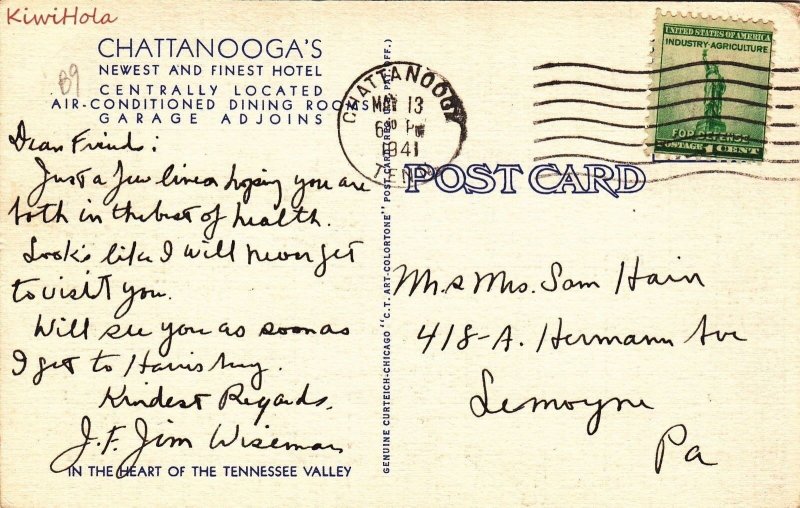 KiwiHola
CHATTANOOGA'S
NEWEST AND FINEST HOTEL
CENTRALLY LOCATED
AIR-CONDITIONED DINING ROOMS
GARAGE ADJOINS
89
Dear Friend:
Just a few lines hoping you are
both in the best of health.
Looks like I will never get
to visit you.
Will see you as soon as
I get to Harrisburg.
Kindest Regards,
J.F. Jim Wiseman
IN THE HEART OF THE TENNESSEE VALLEY
GENUINE CURTEICH-CHICAGO "C.T. ART-COLORTONE" POST CARD (REG. U.S. PAT. OFF.)
CHATTANOOGA
MAY 13
6 30 PM
1941
TENN.
UNITED STATES OF AMERICA
INDUSTRY-AGRICULTURE
FOR DEFENSE
POSTAGE 1 CENT
POST CARD
Mr & Mrs. Sam Hain
418-A. Hermann Ave
Lemoyne
Pa